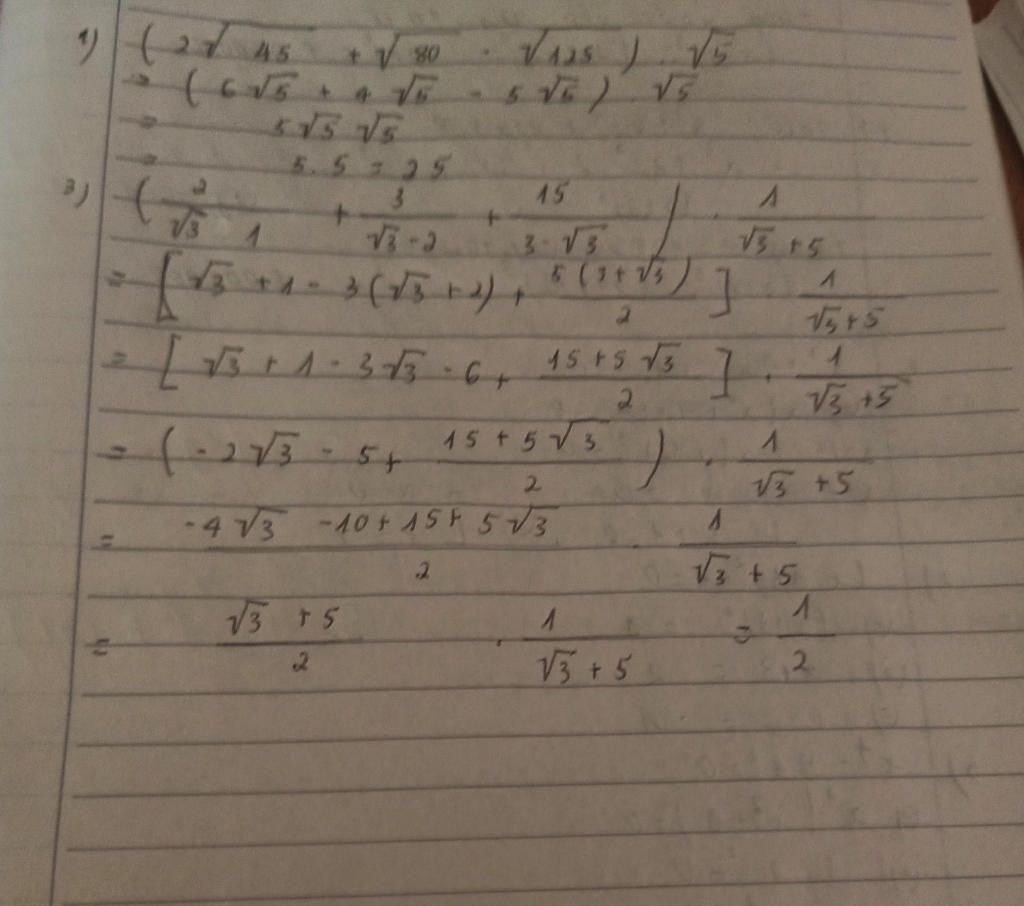 1) ( 2√45 + √80 - √125 ) . √5
= ( 6√5 + 4√5 - 5√5 ) . √5
= 5√5 √5
= 5.5 = 25
3) ( 2/(√3 1) + 3/(√3-2) + 15/(3-√3) ) . 1/(√3+5)
= [ √3 + 1 - 3(√3+2) + 5(3+√3)/2 ] . 1/(√3+5)
= [ √3 + 1 - 3√3 - 6 + (15+5√3)/2 ] . 1/(√3+5)
= ( -2√3 - 5 + (15+5√3)/2 ) . 1/(√3+5)
= (-4√3 -10+15+5√3)/2 . 1/(√3+5)
= (√3+5)/2 . 1/(√3+5) = 1/2